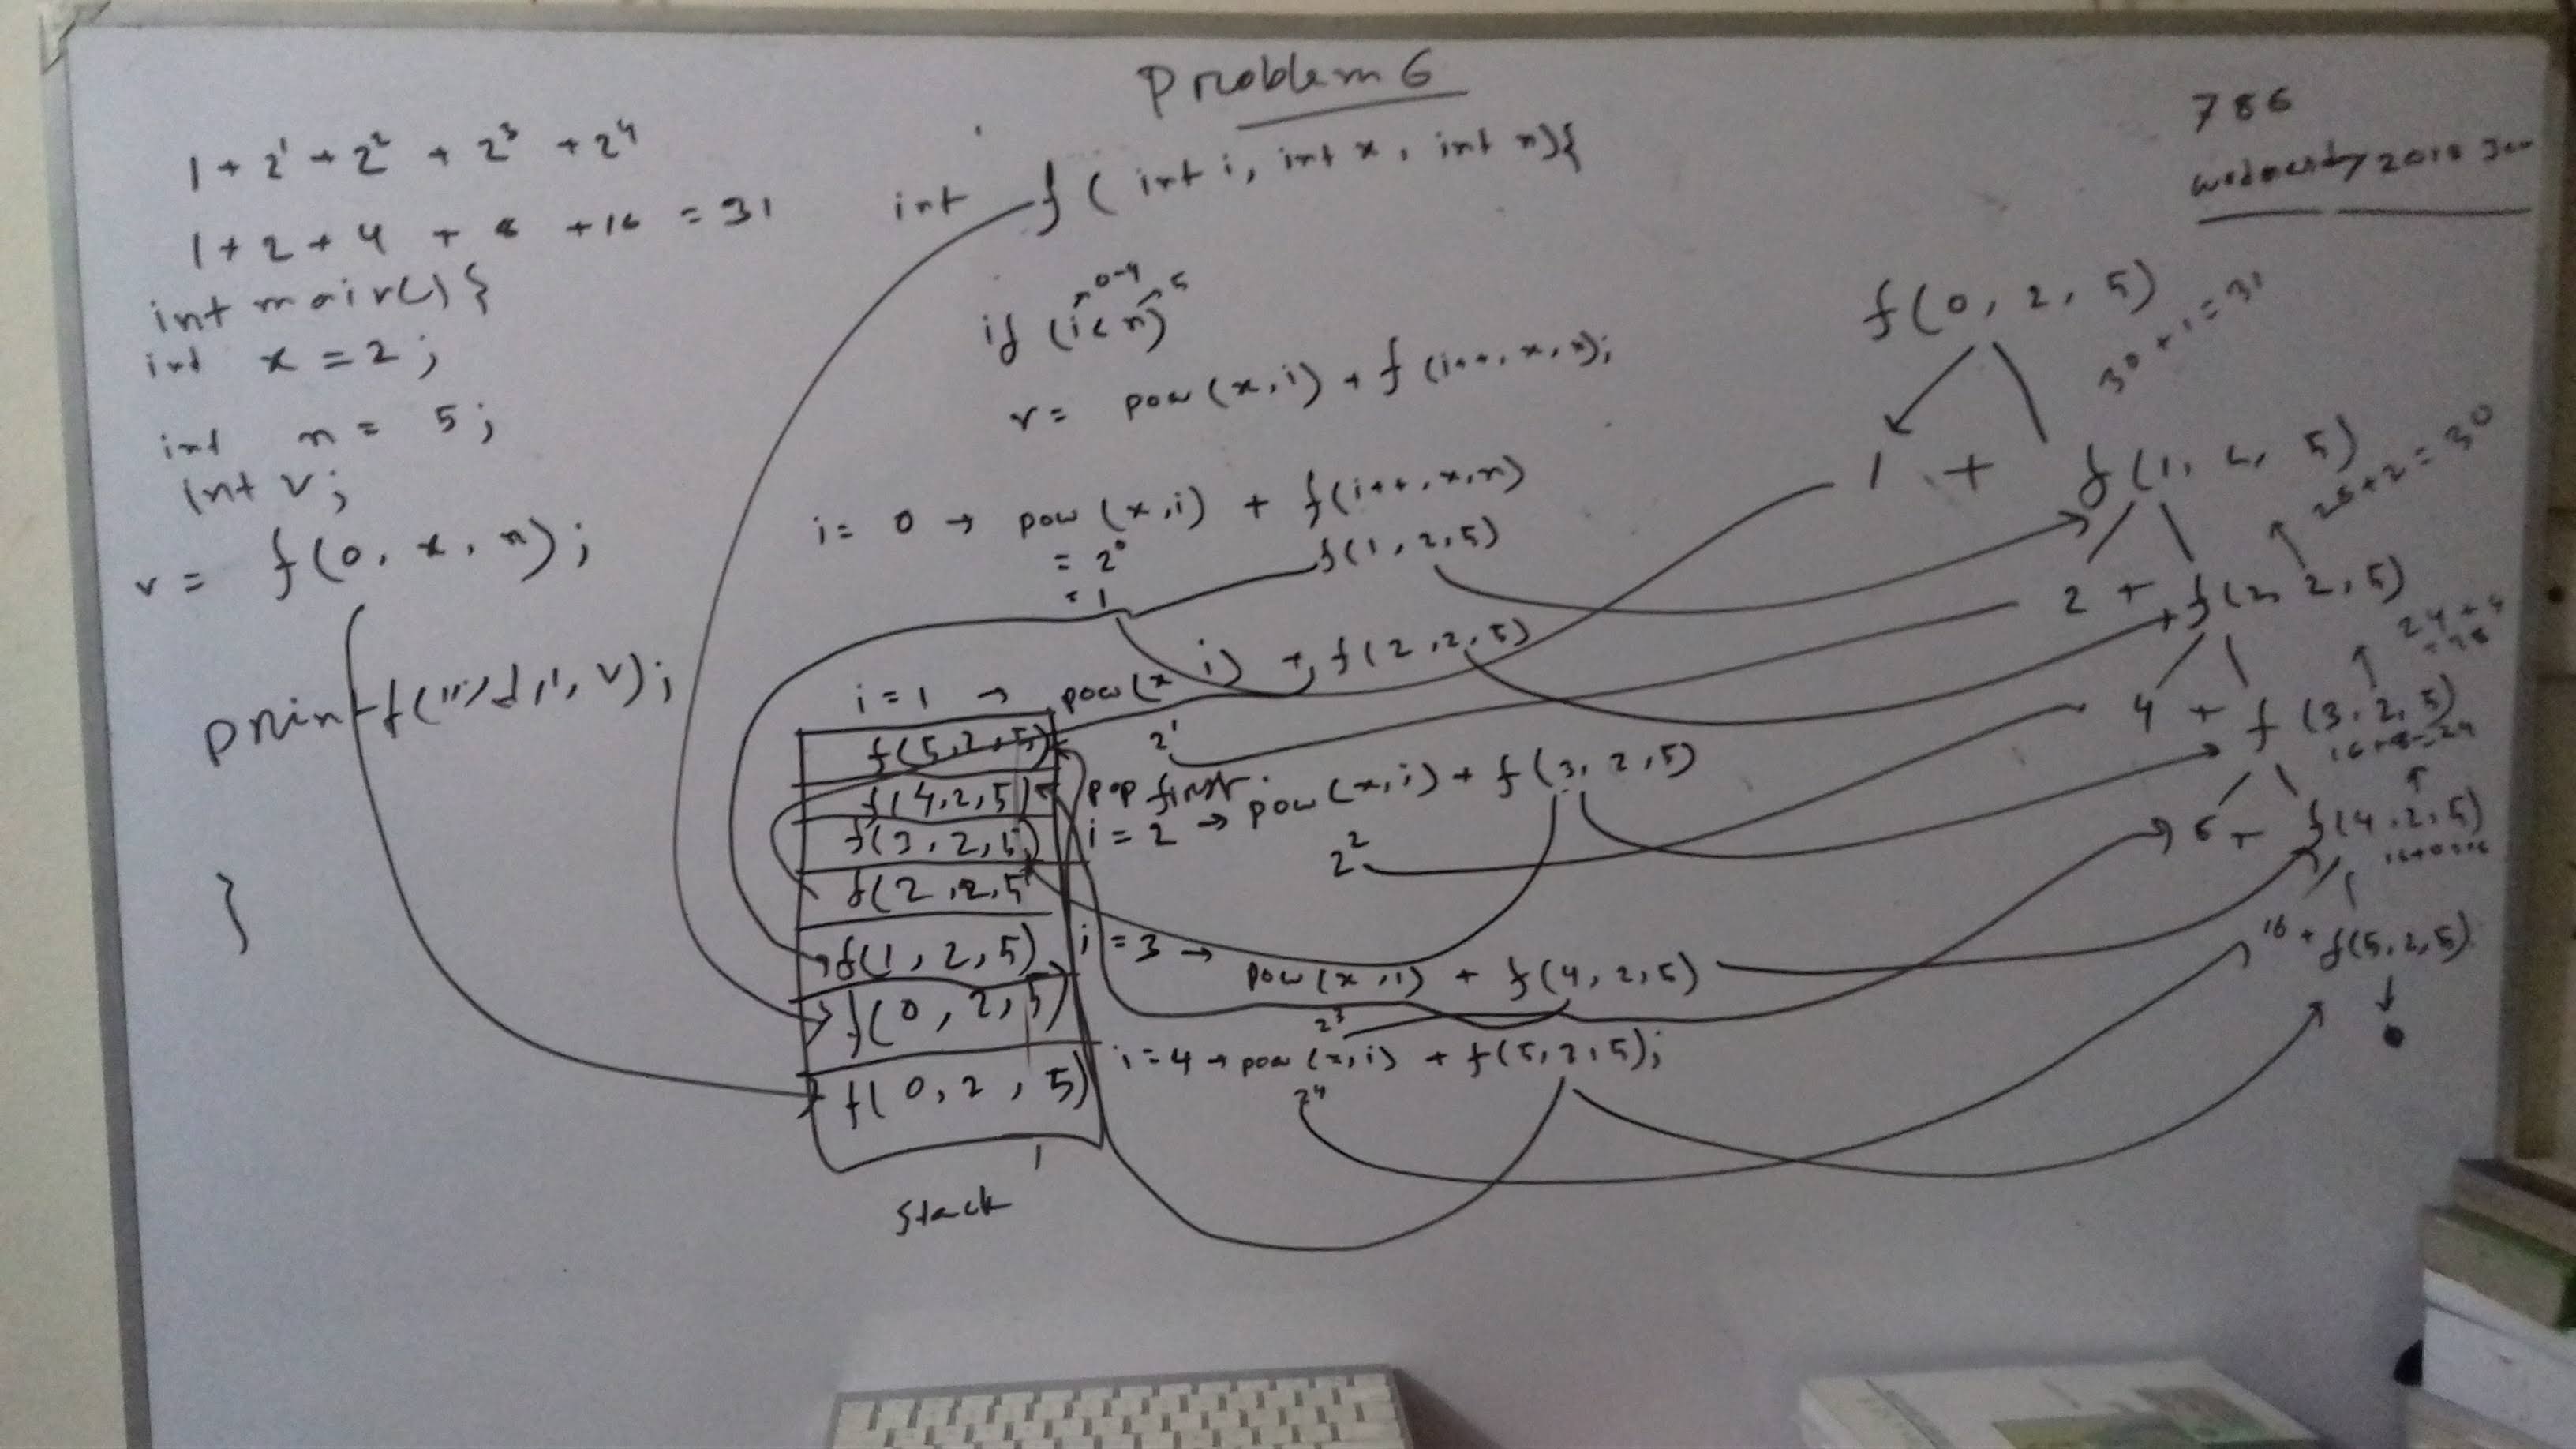 Problem 6
786
wednesday 2018 Jan
1 + 2¹ + 2² + 2³ + 2⁴
1 + 2 + 4 + 8 + 16 = 31
int main() {
int x = 2 ;
int n = 5 ;
int v ;
v = f(0, x, n) ;
printf("%d", v);
}
int f ( int i, int x, int n){
0-4 5
if (i < n)
v = pow(x,i) + f(i++, x, n);
i = 0 → pow(x,i) + f(i++, x, n)
= 2⁰ f(1, 2, 5)
= 1
i = 1 → pow(x i) + f(2, 2, 5)
2¹
pop first.
i = 2 → pow(x,i) + f(3, 2, 5)
2²
i = 3 → pow(x,i) + f(4, 2, 5)
2³
i = 4 → pow(x,i) + f(5, 2, 5);
2⁴
f(5,2,5)
f(4,2,5)
f(3, 2, 5)
f(2, 2, 5
f(1, 2, 5)
f(0, 2, 5)
f(0, 2, 5)
Stack
f(0, 2, 5)
30 + 1 = 31
1 + f(1, 2, 5)
28 + 2 = 30
2 + f(2, 2, 5)
24 + 4
= 28
4 + f(3, 2, 5)
16 + 8 = 24
8 + f(4, 2, 5)
16+0=16
16 + f(5, 2, 5)